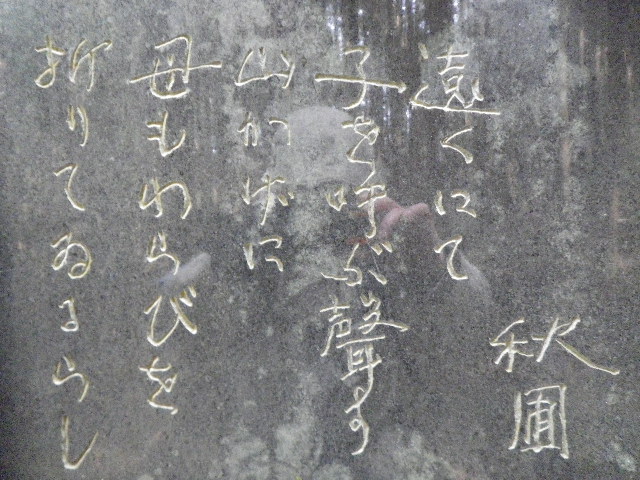 秋圃
遠くにて
子を呼ぶ聲す
山かげに
母もわらびを
折りてゐるらし